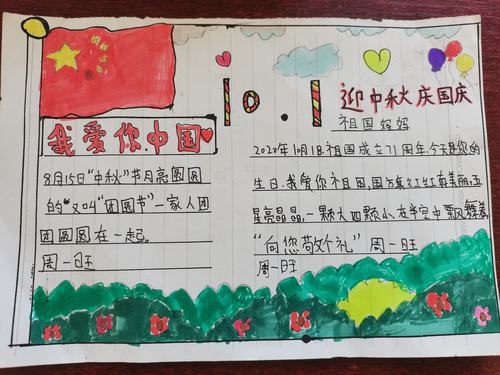 10.1
迎中秋庆国庆
我爱你中国
祖国妈妈
8月15日"中秋"节月亮圆圆
的"又叫"团圆节"一家人团
团圆圆在一起。
周一日旺
2020年10月1日祖国成立71周年.今天是您的
生日.我爱你祖国,国方红红红有美丽.五
星亮晶晶,一颗大四颗小,在半空中飘风舞着
"向您敬个礼"周一日旺
周一日旺